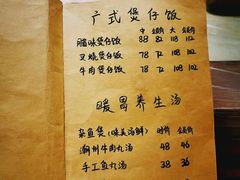 广式煲仔饭
中 会员价 大 会员价
腊味煲仔饭 88 82 118 112
叉烧煲仔饭 78 72 108 102
牛肉煲仔饭 78 72 108 102
暖胃养生汤
杂鱼煲(味美海鲜) 时价 会员价
潮州牛肉丸汤 48 46
手工鱼丸汤 38 36